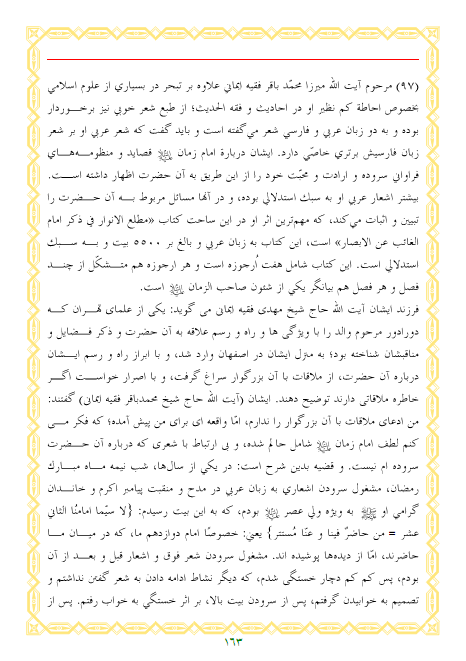 (۹۷) مرحوم آیت الله میرزا محمّد باقر فقیه إیمانی علاوه بر تبحر در بسیاری از علوم اسلامی
بخصوص احاطة کم نظیر او در احادیث و فقه الحدیث؛ از طبع شعر خوبی نیز برخـــوردار
بوده و به دو زبان عربی و فارسی شعر می‌گفته است و باید گفت که شعر عربی او بر شعر
زبان فارسیش برتری خاصّی دارد. ایشان دربارة امام زمان ﷺ قصاید و منظومـــه‌هـــای
فراوانی سروده و ارادت و محبّت خود را از این طریق به آن حضرت اظهار داشته اســـت.
بیشتر اشعار عربی او به سبك استدلالی بوده، و در آنها مسائل مربوط بـــه آن حـــضرت را
تبیین و اثبات می‌کند، که مهم‌ترین اثر او در این ساحت کتاب «مطلع الانوار فی ذکر امام
الغائب عن الابصار» است، این کتاب به زبان عربی و بالغ بر ۵۵۰۰ بیت و بـــه ســـبك
استدلالی است. این کتاب شامل هفت اُرجوزه است و هر ارجوزه هم متـــشکّل از چنـــد
فصل و هر فصل هم بیانگر یکی از شئون صاحب الزمان است.
فرزند ایشان آیت الله حاج شیخ مهدی فقیه ایمانی می گوید: یکی از علمای تهـــران کـــه
دورادور مرحوم والد را با ویژگی ها و راه و رسم علاقه به آن حضرت و ذکر فـــضایل و
مناقبشان شناخته بود؛ به منزل ایشان در اصفهان وارد شد، و با ابراز راه و رسم ایـــشان
درباره آن حضرت، از ملاقات با آن بزرگوار سراغ گرفت، و با اصرار خواســـت اگـــر
خاطره ملاقاتی دارند توضیح دهند. ایشان (آیت الله حاج شیخ محمدباقر فقیه إیمانی) گفتند:
من ادعای ملاقات با آن بزرگوار را ندارم، امّا واقعه ای برای من پیش آمده؛ که فکر مـــی
کنم لطف امام زمان شامل حالم شده، و بی ارتباط با شعری که درباره آن حـــضرت
سروده ام نیست. و قضیه بدین شرح است: در یکی از سال‌ها، شب نیمه مـــاه مبـــارك
رمضان، مشغول سرودن اشعاری به زبان عربی در مدح و منقبت پیامبر اکرم و خانـــدان
گرامی او ﷺ به ویژه ولی عصر بودم، که به این بیت رسیدم: {لا سیّما امامُنا الثانی
عشر = من حاضرٌ فینا و عنّا مُستتر} یعنی: خصوصًا امام دوازدهم ما، که در میـــان مـــا
حاضرند، امّا از دیده‌ها پوشیده اند. مشغول سرودن شعر فوق و اشعار قبل و بعـــد از آن
بودم، پس کم کم دچار خستگی شدم، که دیگر نشاط ادامه دادن به شعر گفتن نداشتم و
تصمیم به خوابیدن گرفتم، پس از سرودن بیت بالا، بر اثر خستگی به خواب رفتم. پس از
۱۶۳